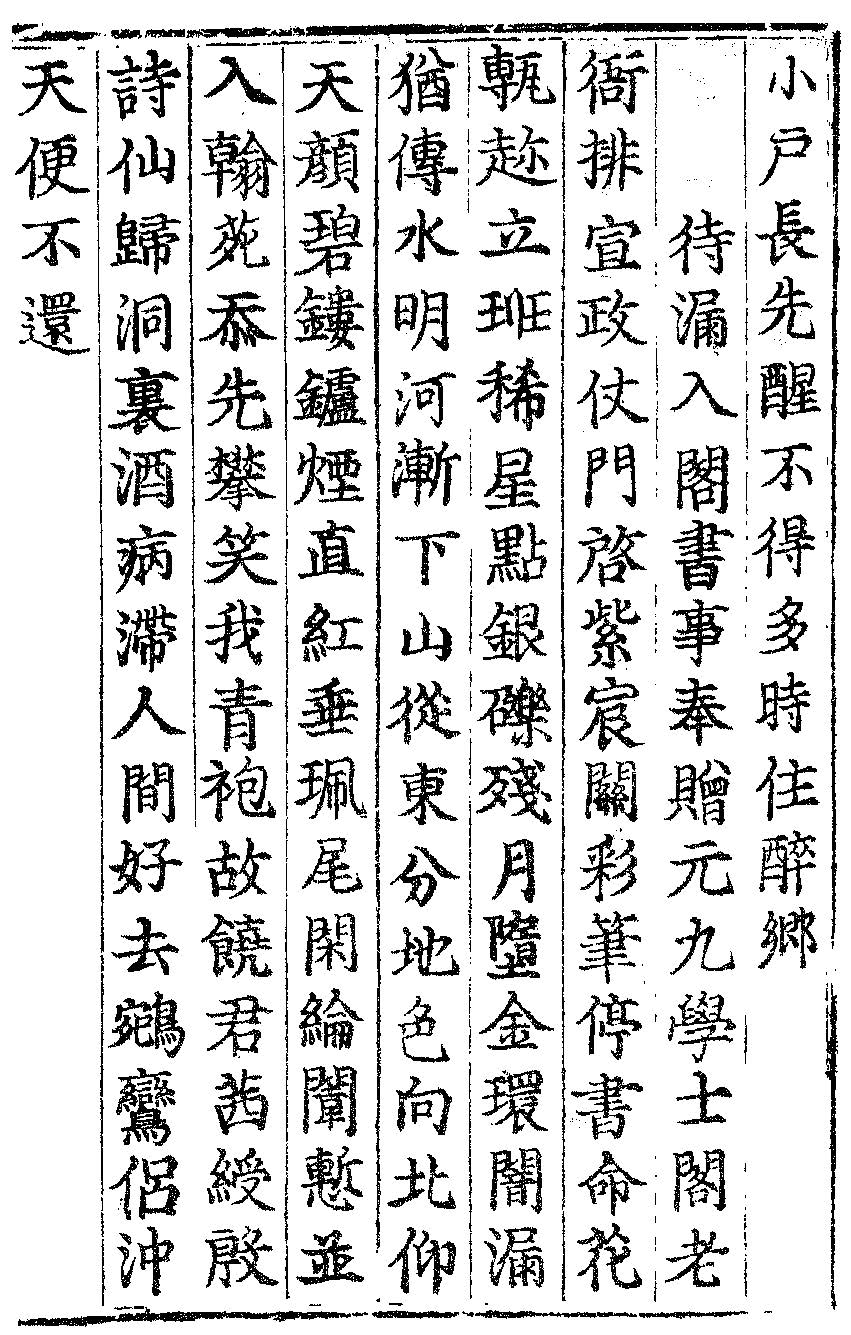 小戸長先醒不得多時住醉鄉
待漏入閣書事奉贈元九學士閣老
衙排宣政仗門啓紫宸關彩筆停書命花
甎趂立班稀星點銀礫殘月墮金環闇漏
猶傳水明河漸下山從東分地色向北仰
天顏碧鏤鑪煙直紅垂珮尾閑綸闈慙並
入翰苑忝先攀笑我青袍故饒君茜綬殷
詩仙歸洞裏酒病滯人間好去鵷鸞侶沖
天便不還